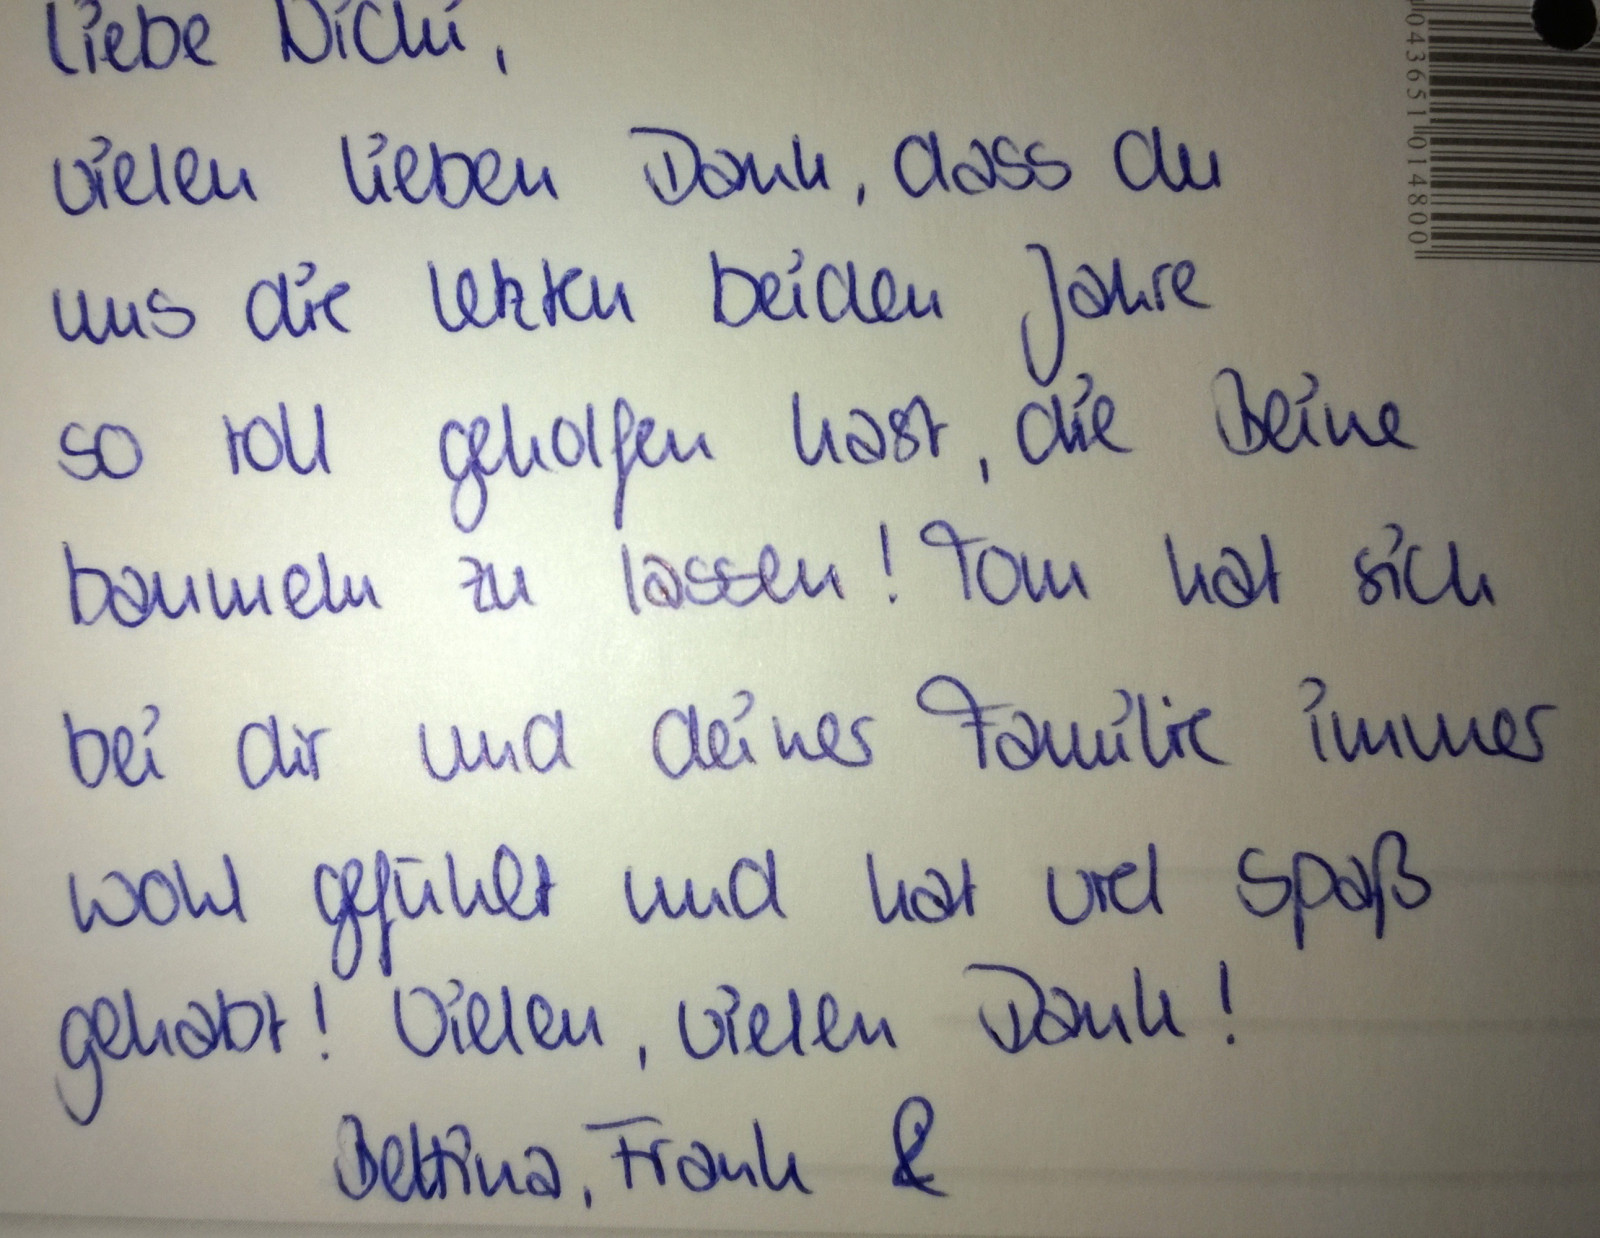 Liebe Nicki,
vielen lieben Dank, dass du
uns die letzten beiden Jahre
so toll geholfen hast, die Beine
baumeln zu lassen! Tom hat sich
bei dir und deiner Familie immer
wohl gefühlt und hat viel Spaß
gehabt! Vielen, vielen Dank!
Bettina, Frank &
043651 014800